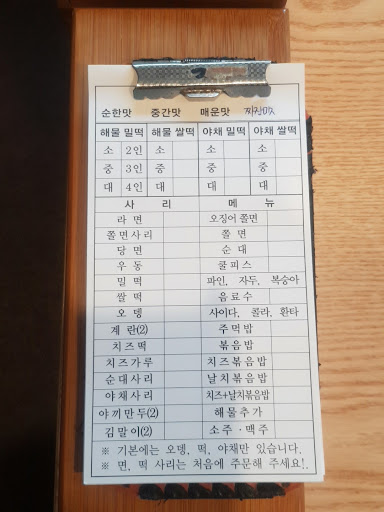 순한맛 중간맛 매운맛 찌잔맛
해물 밀떡 해물 쌀떡 야채 밀떡 야채 쌀떡
소 2인 소 소 소
중 3인 중 중 중
대 4인 대 대 대
사 리 메 뉴
라 면 오징어 쫄면
쫄면사리 쫄 면
당 면 순 대
우 동 쿨피스
밀 떡 파인, 자두, 복숭아
쌀 떡 음료수
오 뎅 사이다, 콜라, 환타
계 란(2) 주먹밥
치즈떡 볶음밥
치즈가루 치즈볶음밥
순대사리 날치볶음밥
야채사리 치즈+날치볶음밥
야끼만두(2) 해물추가
김말이(2) 소주·맥주
※ 기본에는 오뎅, 떡, 야채만 있습니다.
※ 면, 떡 사리는 처음에 주문해 주세요!.